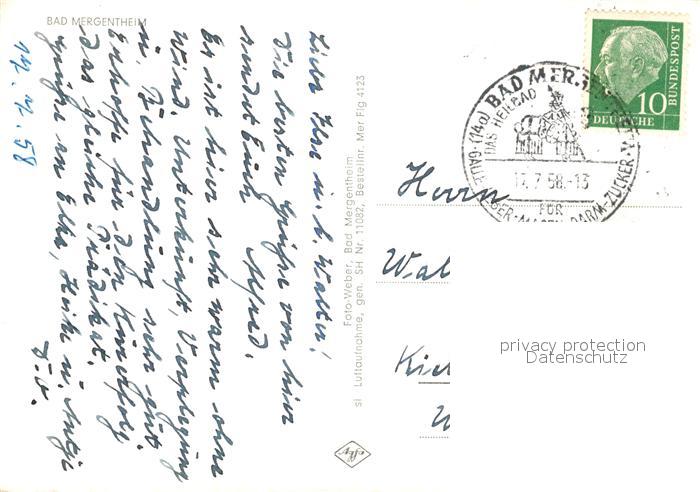 BAD MERGENTHEIM
14. 7. 58
Liebe Ilse u. b. Walter!
Die besten Grüße von hier
sendet Euch Alfred.
Es ist hier sehr warm ohne
Wind. Unterkunft, Verpflegung
u. Behandlung sehr gut
Erhoffe für den Kurerfolg
das gleiche Prädikat.
Grüße an Elke, Heike u. Antje
D. O.
Foto-Weber, Bad Mergentheim
sl Luftaufnahme, gen. SH Nr. 11082, Bestellnr. Mer Flg 4123
BAD MERGENTHEIM
(14a) DAS HEILBAD
17.7.58.-13
FÜR
GALLE-LEBER-MAGEN-DARM-ZUCKER
DEUTSCHE BUNDESPOST
10
Herrn
Wal
Kiel
privacy protection
Datenschutz